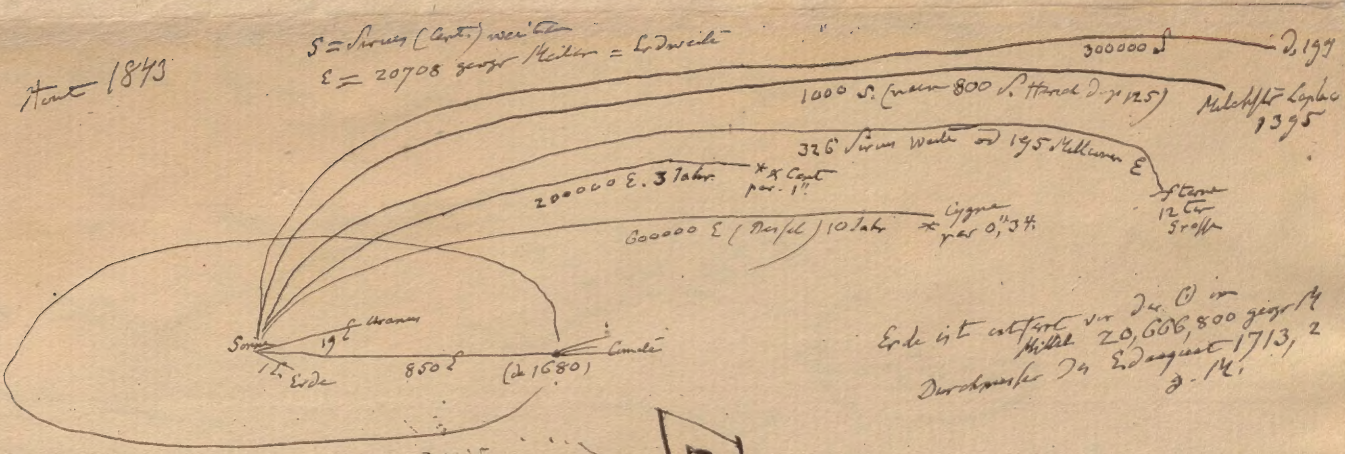 Aout 1843
S = Sirius (Cent.) weite
E = 20708 geogr Meilen = Erdweite
300000 S
1000 S. (nach 800 S. Hersch p 125)
Milchstr Laplace
1395
326 Sirius weite od 195 Millionen E
Sterne
12 ter
Grösse
200000 E. 3 Jahr.
* α Cent
par. 1"
600000 E (Bessel) 10 Jahr
* Cygne
par 0,"34.
Sonne
19 E Uranus
1 E. Erde
850 E
(de 1680)
Comete
Erde ist entfernt von der ☉ im
Mittel 20,666,800 geogr M
Durchmesser des Erdaequat 1713,2
g. M.